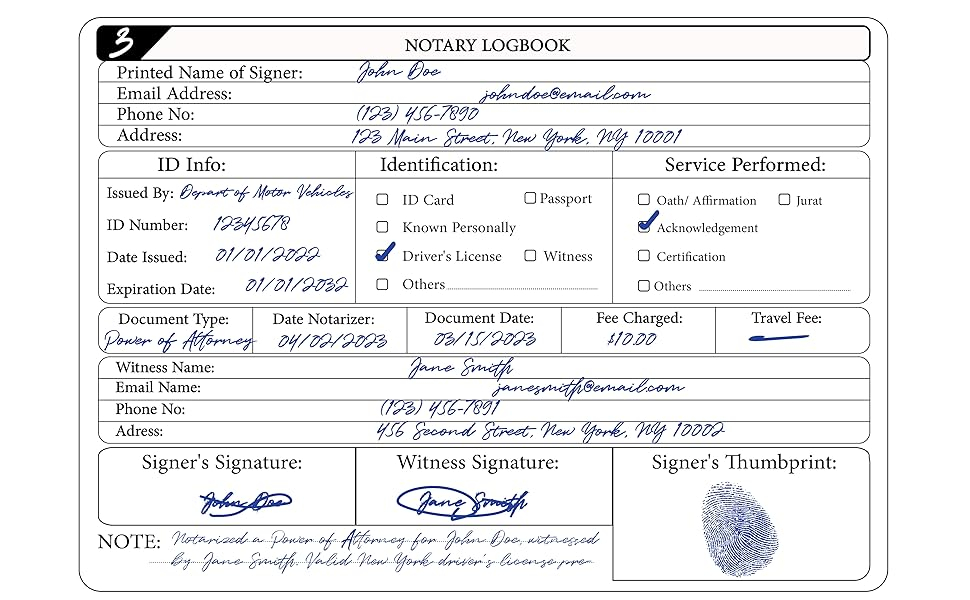 3
NOTARY LOGBOOK
Printed Name of Signer: John Doe
Email Address: johndoe@email.com
Phone No: (123) 456-7890
Address: 123 Main Street, New York, NY 10001
ID Info: Identification: Service Performed:
Issued By: Depart of Motor Vehicles ID Card Passport Oath/ Affirmation Jurat
ID Number: 12345678 Known Personally Acknowledgement
Date Issued: 01/01/2022 Driver's License Witness Certification
Expiration Date: 01/01/2032 Others Others
Document Type: Date Notarizer: Document Date: Fee Charged: Travel Fee:
Power of Attorney 04/02/2023 03/15/2023 $10.00
Witness Name: Jane Smith
Email Name: janesmith@email.com
Phone No: (123) 456-7891
Adress: 456 Second Street, New York, NY 10002
Signer's Signature: Witness Signature: Signer's Thumbprint:
John Doe Jane Smith
NOTE: Notarized a Power of Attorney for John Doe, witnessed
by Jane Smith. Valid New York driver's license pre